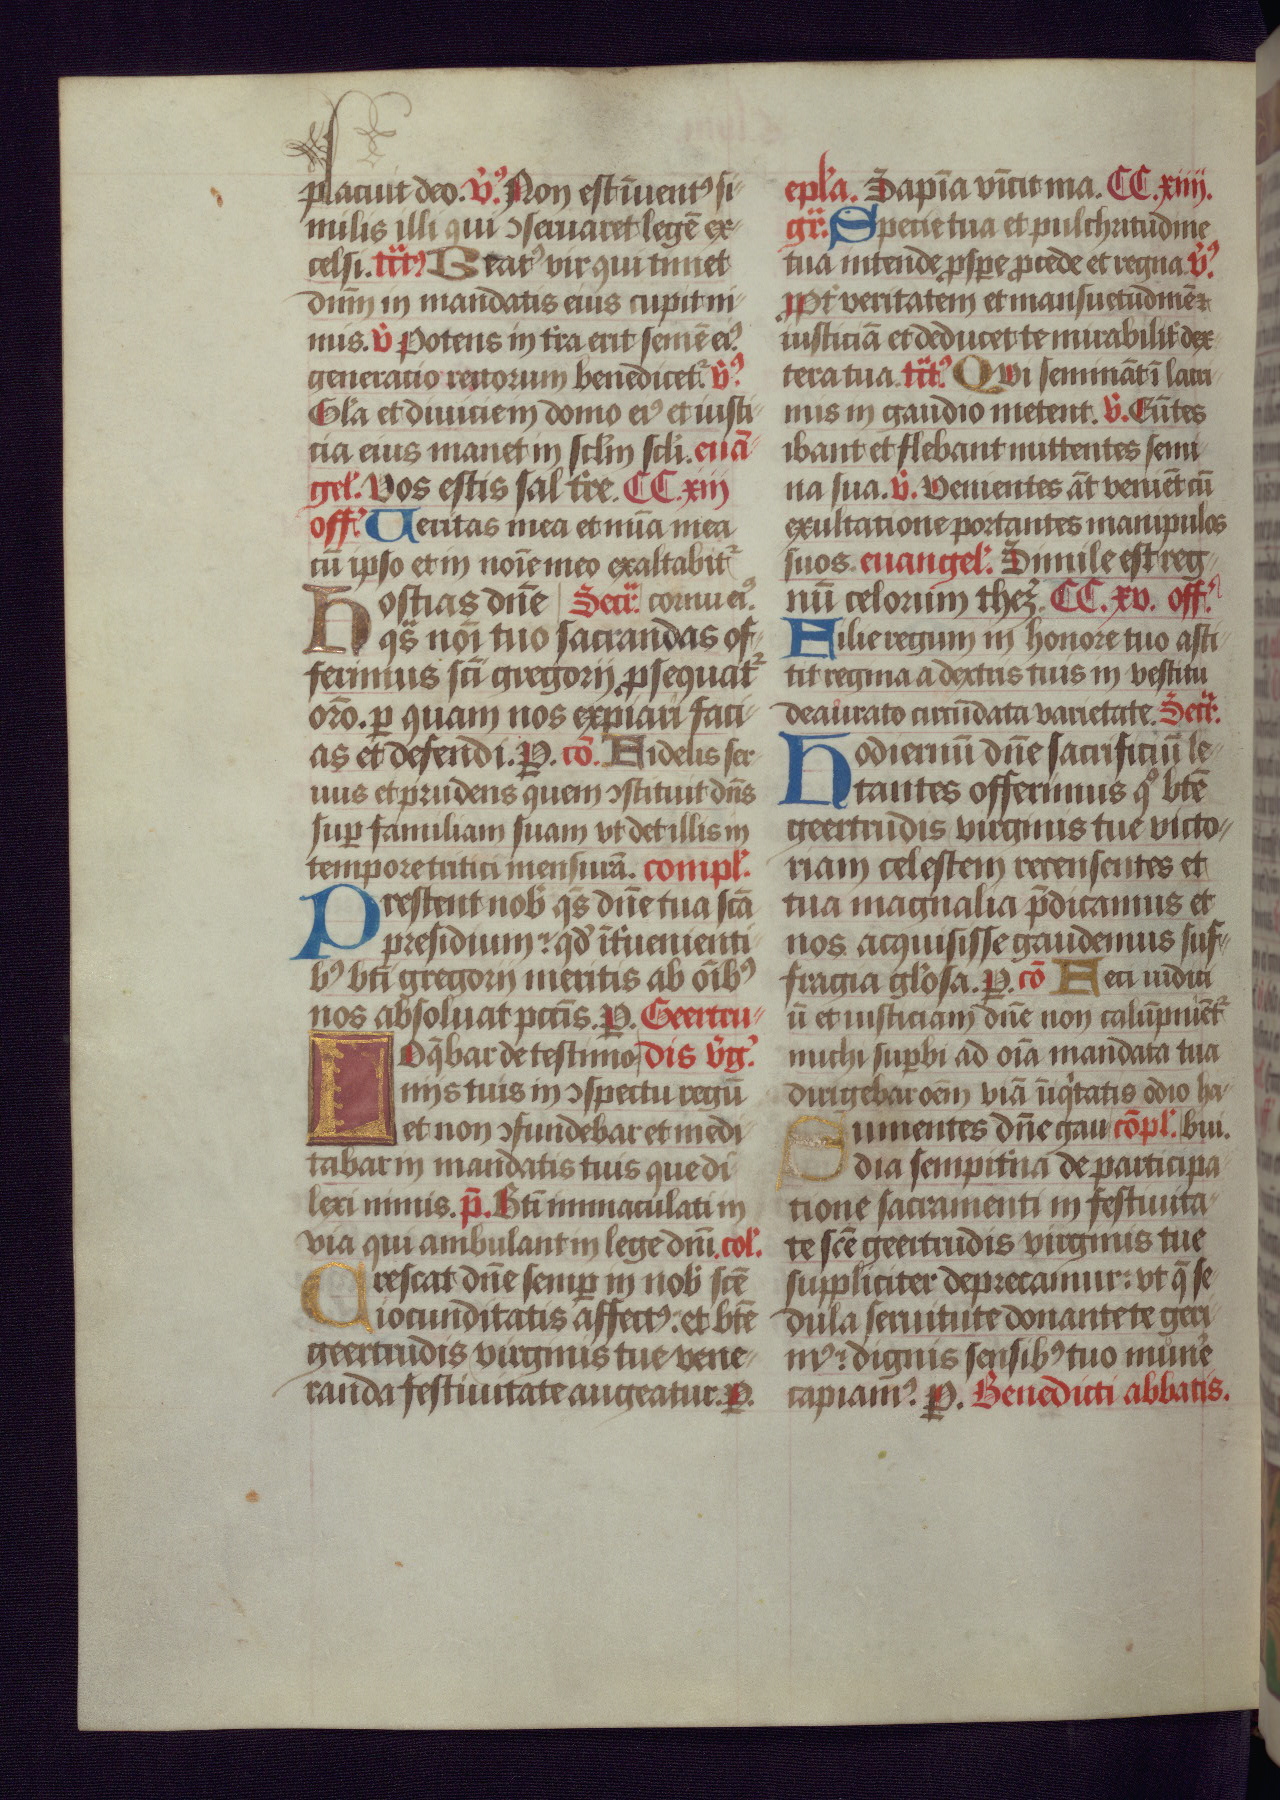 placuit deo. v̄ꝰ Non est īuentꝰ si-
milis illi qui ↄseruaret legē ex-
celsi. tr̄ctꝰ Beatꝰ vir qui timet
dnm̄ in mandatis eius cupit ni-
mis. v̄ Potens in tr̄a erit semē eiꝰ
generacio rectorum benedicetᷣ. v̄ꝰ
Gl̄a et diuiciem domo eiꝰ et iusti-
cia eius manet in scl̄m scl̄i. euā-
gel̄. Vos estis sal tr̄e. CC.xiij
off̄ꝰ Ueritas mea et mīa mea
cū ipso et in noīe meo exaltabitᷣ
Hostias dn̄e Secr̄. cornu eiꝰ.
qs̄ noī tuo sacrandas of-
ferimus sc̄i gregorij ꝓsequatᷣ
orō. ꝑ quam nos expiari faci-
as et defendi. P. cō. Fidelis ser-
uus et prudens quem ↄstituit dn̄s
suꝑ familiam suam vt det illis in
tempore tritici mensurā. compl̄.
Prestent nob̄ qs̄ dn̄e tua sc̄a
presidium: qd̄ īt̄uenienti-
bꝰ bt̄i gregorij meritis ab oīb̄ꝰ
nos absoluat pcc̄is. P. Geertru-
Loq̄bar de testimo dis v̄gꝰ.
nijs tuis in ↄspectu regū
et non ↄfundebar et medi-
tabar in mandatis tuis que di-
lexi nimis. p̄. Bt̄i immaculati in
via qui ambulant in lege dn̄i. col̄.
Crescat dn̄e semꝑ in nob̄ sc̄e
iocunditatis affectꝰ: et bt̄e
geertrudis virginis tue vene-
randa festiuitate augeatur. P.
epl̄a. Sapīa vīcit ma. CC.xiiij.
gr̄. Specie tua et pulchritudine
tua intende ꝓsꝑe ꝓcede et regna v̄ꝰ
Ppt̄ veritatem et mansuetudinē ⁊
iusticiā et deducet te mirabilit̄ dex-
tera tua. tr̄ctꝰ Qvi semināt ī lacri-
mis in gaudio metent. v̄. Eūtes
ibant et flebant mittentes semi-
na sua. v̄. Venientes āt veniēt cū
exultatione portantes manipulos
suos. euangel̄. Simile est reg-
nū celorum thez̄. CC.xv. off̄ꝰ
Filie regum in honore tuo asti-
tit regina a dextris tuis in vestitu
deaurato circūdata varietate. Secr̄.
Hodiernū dn̄e sacrificiū le-
tantes offerimus qͦ bt̄e
geertrudis virginis tue victo-
riam celestem recensentes et
tua magnalia p̄dicamus et
nos acquisisse gaudemus suf-
fragia glōsa. P. cō Feci iudici-
ū et iusticiam dn̄e non calūpniētᷣ
michi suꝑbi ad oīa mandata tua
dirigebar oēm viā īiq̄tatis odio ha-
Sumentes dn̄e gau cōpl̄. bui.
dia sempit̄na de participa-
tione sacramenti in festiuita-
te sc̄e geertrudis virginis tue
suppliciter deprecamur: vt q̄ se-
dula seruitute donante te geri-
mꝰ: dignis sensibꝰ tuo mun̄e
capiamꝰ. P. Benedicti abbatis.